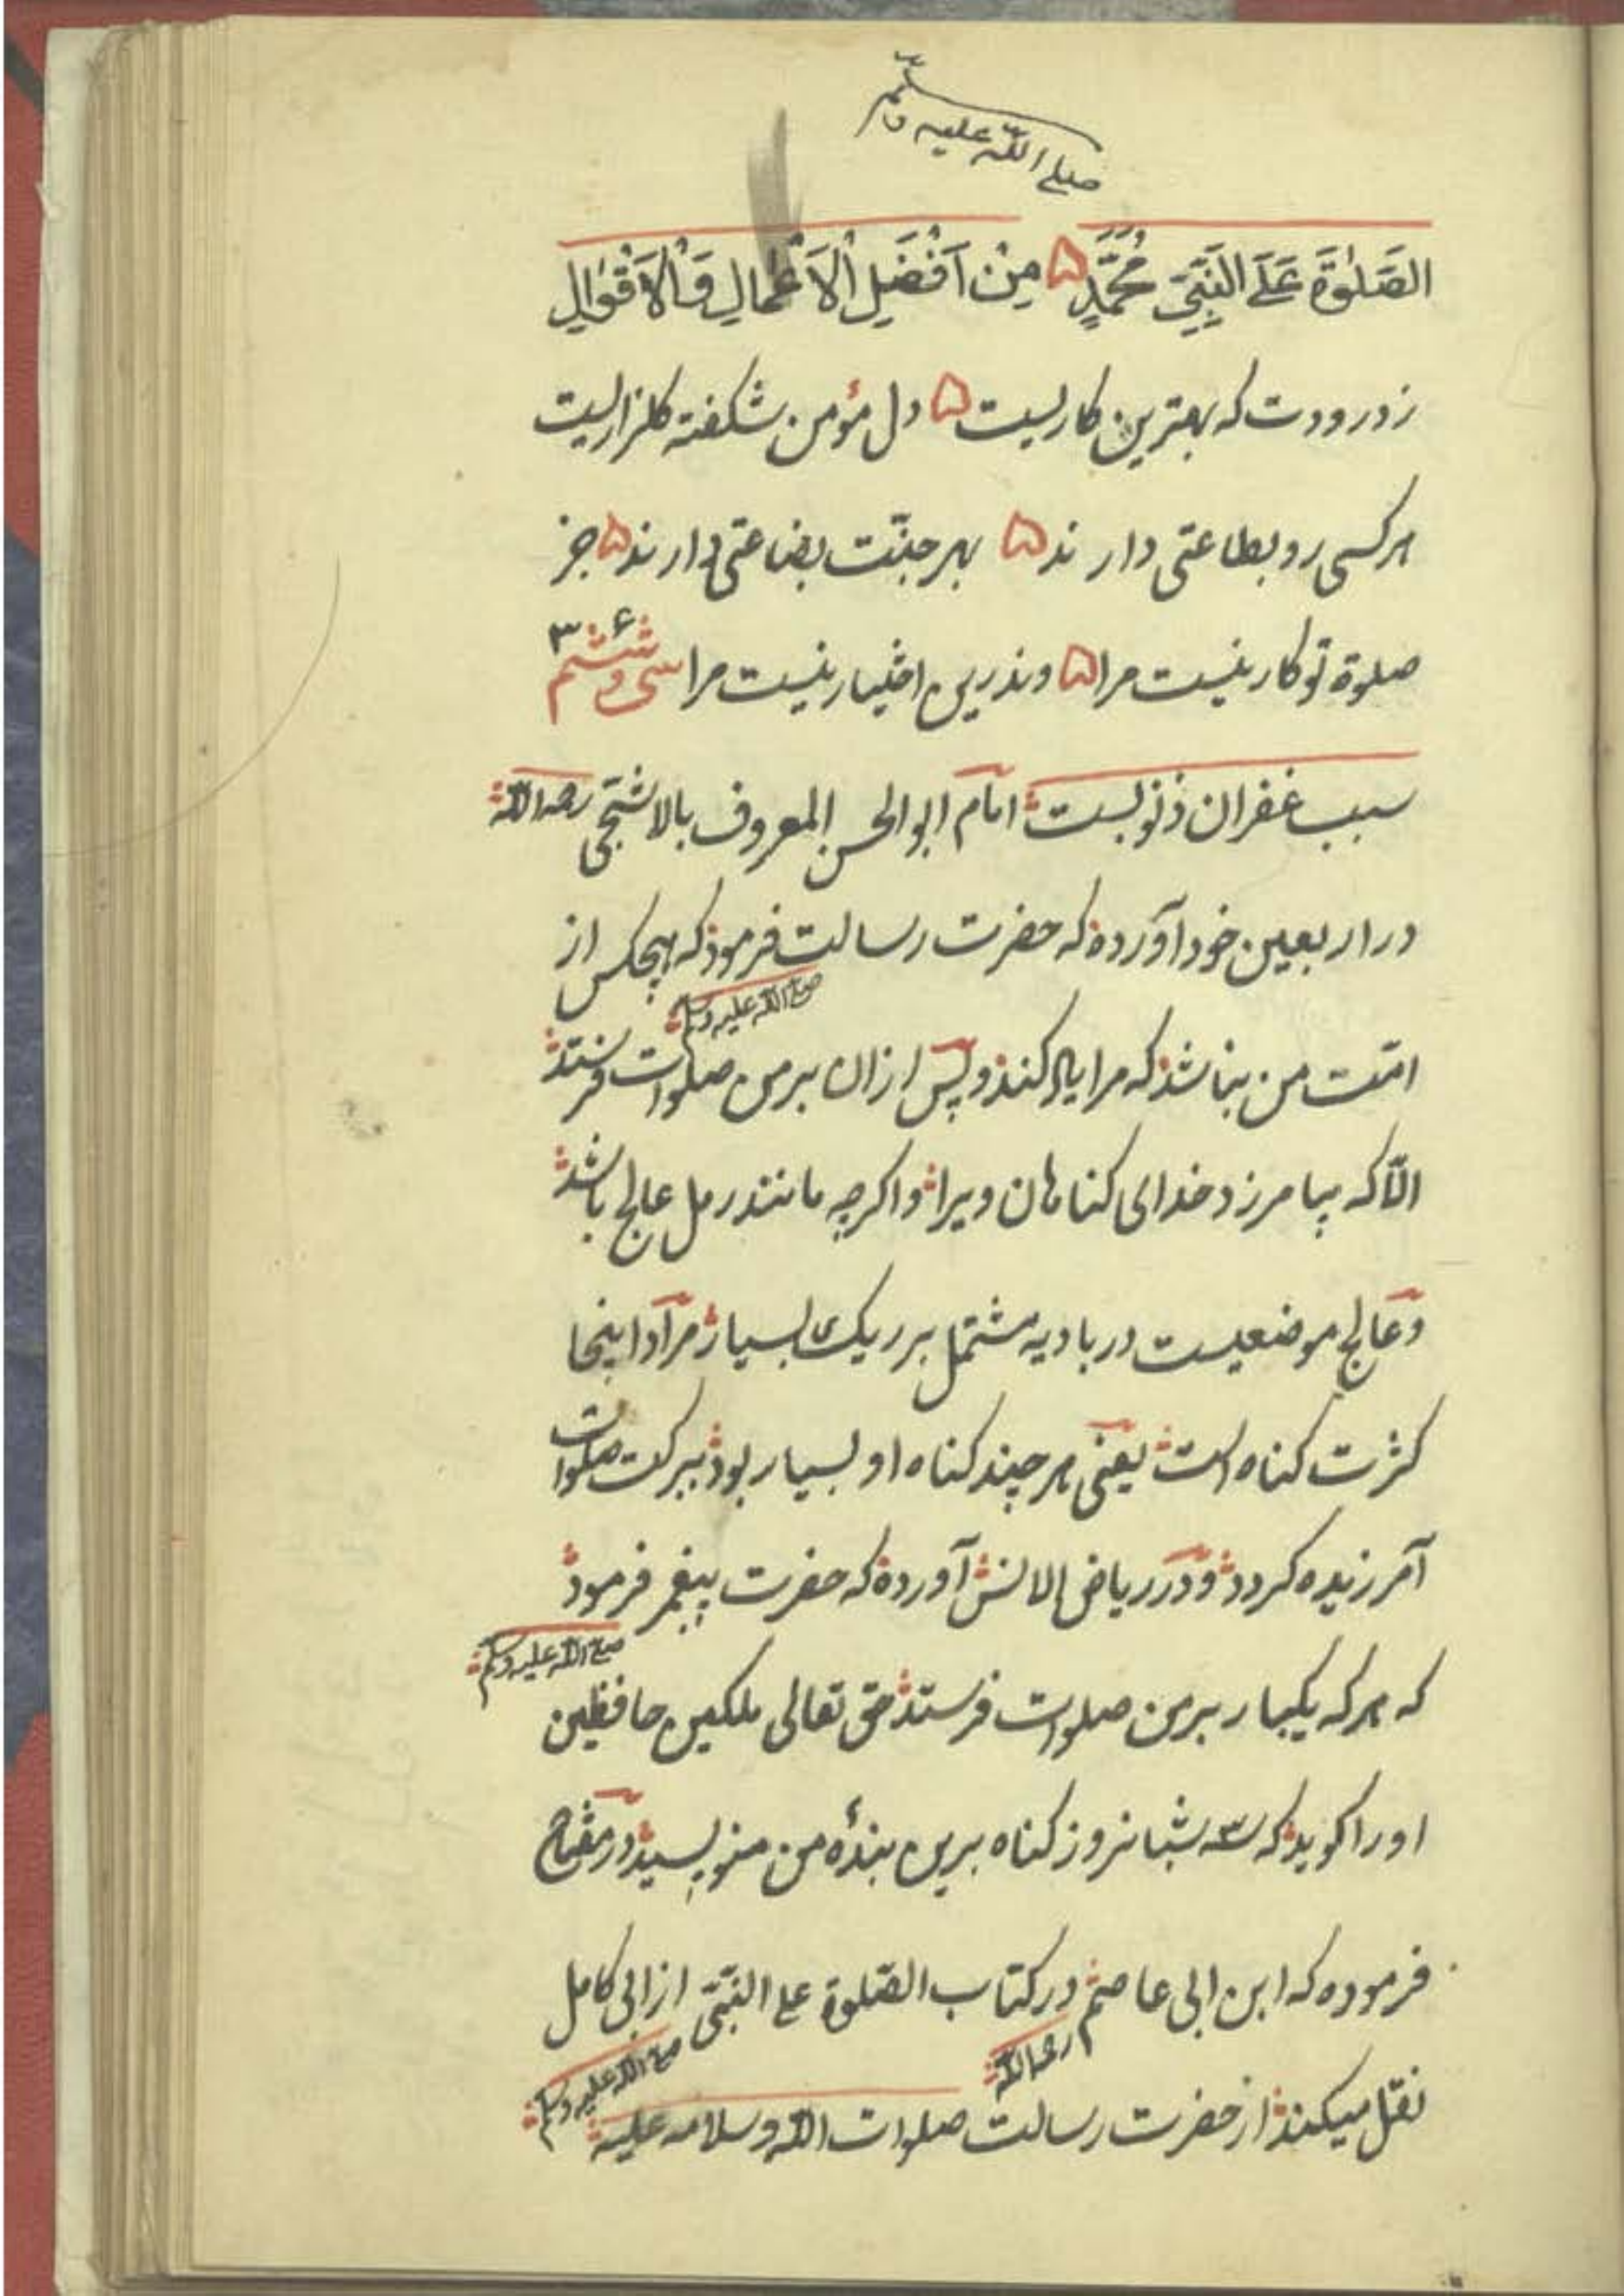 صلی اللّه علیه وسلّم
الصَّلٰوةَ عَلَی النَّبِیِّ مُحَمَّدٍ ۵ مِنْ اَفْضَلِ الْاَعْمٰالِ وَالْاَقْوٰالِ
ز درودت که بهترین کاریست ۵ دل مؤمن شکفته کلزاریست
هر کسی رو بطاعتی دارند ۵ بهر جنّت بضاعتی دارند ۵ جز
صلوة تو کار نیست مرا ۵ وندرین اختیار نیست مرا سی و ششم ۳۶
سبب غفران ذنوبست امام ابو الحسن المعروف بالاشجّی رحمه اللّه
در اربعین خود آورده که حضرت رسالت فرمود که هیچکس از
صلی اللّه علیه وسلم
امّت من نباشد که مرا یاد کند و پس ازان بر من صلوات فرستد
الّا که بیامرزد خدای کناهان ویرا و اکرچه مانند رمل عالج باشد
و عالج موضعیست در بادیه مشتمل بر ریک بسیار مراد اینجا
کثرت کناه است یعنی هر چند کناه او بسیار بود ببرکت صلوات
آمرزیده کردد و در ریاض الانس آورده که حضرت پیغمبر فرمود
صلی اللّه علیه وسلم
که هر که یکبار بر من صلوات فرستد حق تعالی ملکین حافظین
او را کوید که سه شبانروز کناه برین بندهٔ من منویسید در مفتاح
فرموده که ابن ابی عاصم در کتاب الصّلوة علی النّبیّ از ابی کامل
رحمه اللّه صلی اللّه علیه وسلم
نقل میکند از حضرت رسالت صلوات اللّه وسلامه علیه